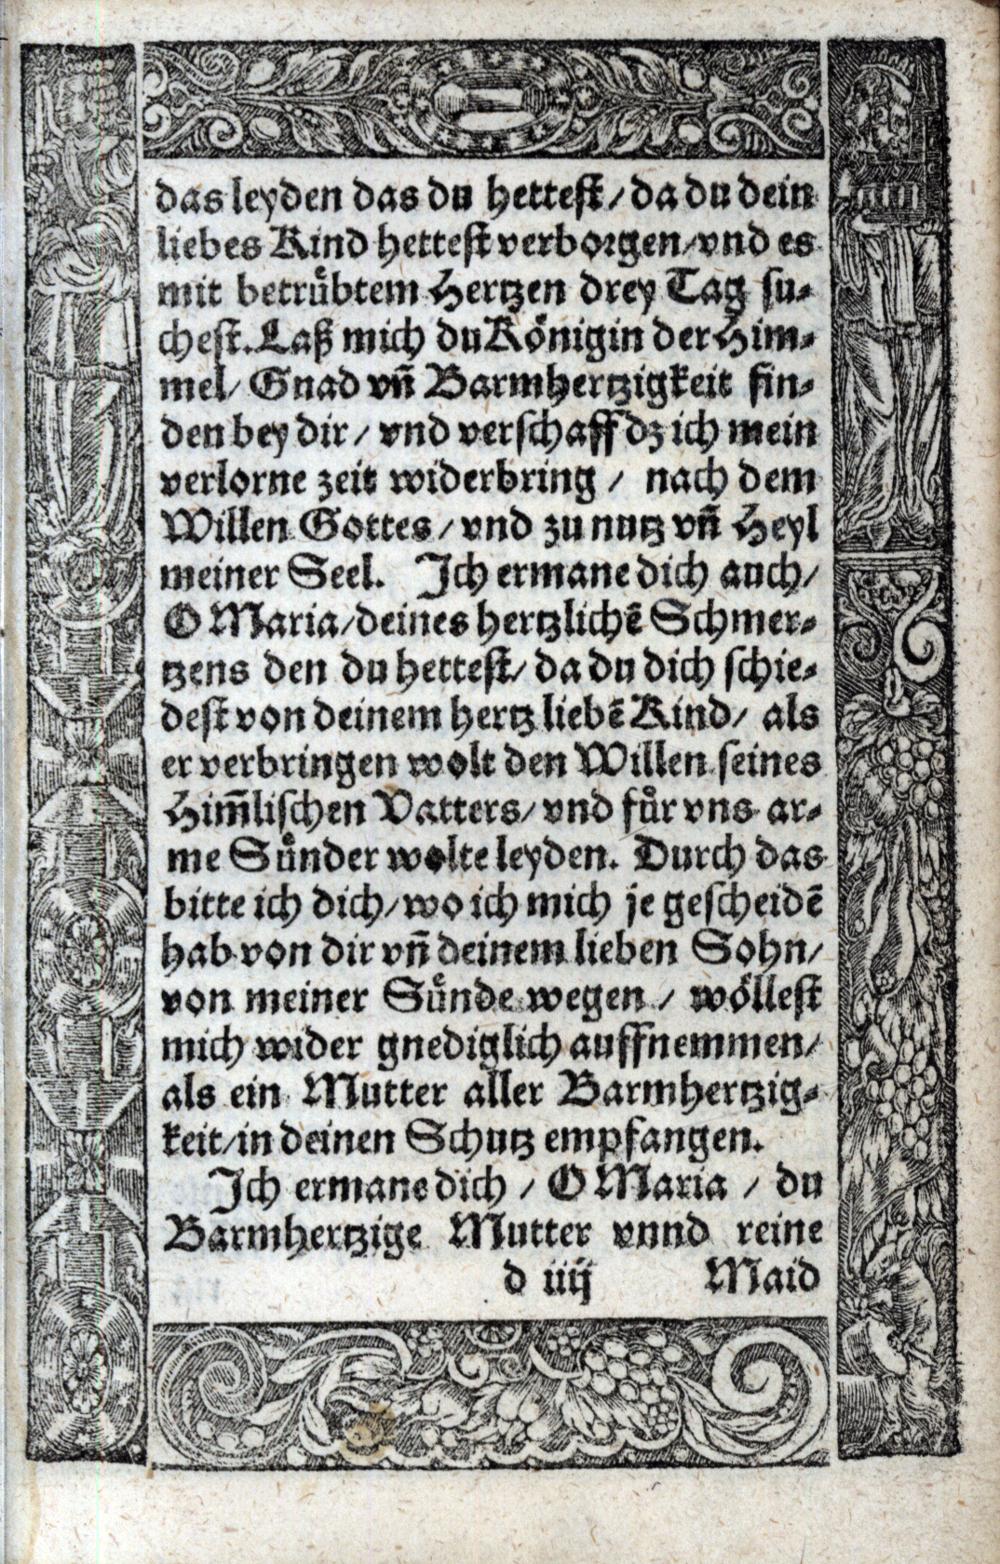 das leyden das du hettest / da du dein
liebes Kind hettest verborgen / vnd es
mit betruͤbtem Hertzen drey Tag su⸗
chest. Laß mich du Koͤnigin der Him⸗
mel / Gnad vn̄ Barmhertzigkeit fin⸗
den bey dir / vnd verschaff dz ich mein
verlorne zeit widerbring / nach dem
Willen Gottes / vnd zu nutz vn̄ Heyl
meiner Seel. Ich ermane dich auch /
O Maria / deines hertzlichē Schmer⸗
tzens den du hettest / da du dich schie⸗
dest von deinem hertz liebē Kind / als
er verbringen wolt den Willen seines
Him̄lischen Vatters / vnd fuͤr vns ar⸗
me Suͤnder wolte leyden. Durch das
bitte ich dich / wo ich mich je gescheidē
hab von dir vn̄ deinem lieben Sohn /
von meiner Suͤnde wegen / woͤllest
mich wider gnediglich auffnemmen /
als ein Mutter aller Barmhertzig⸗
keit / in deinen Schutz empfangen.
Ich ermane dich / O Maria / du
Barmhertzige Mutter vnnd reine
d iiij Maid